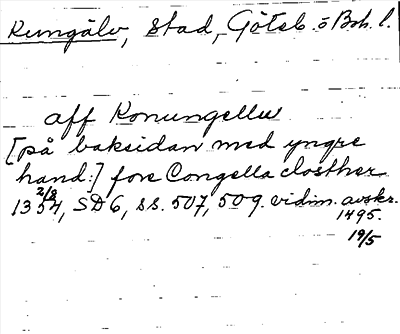 Kungälv, Stad, Göteb. ö Boh. l.
aff Konungellu
[på baksidan med yngre
hand:] fore Congella closther
2/8
1354, SD 6, ss. 507, 509. vidim. avskr.
1495.
19/5